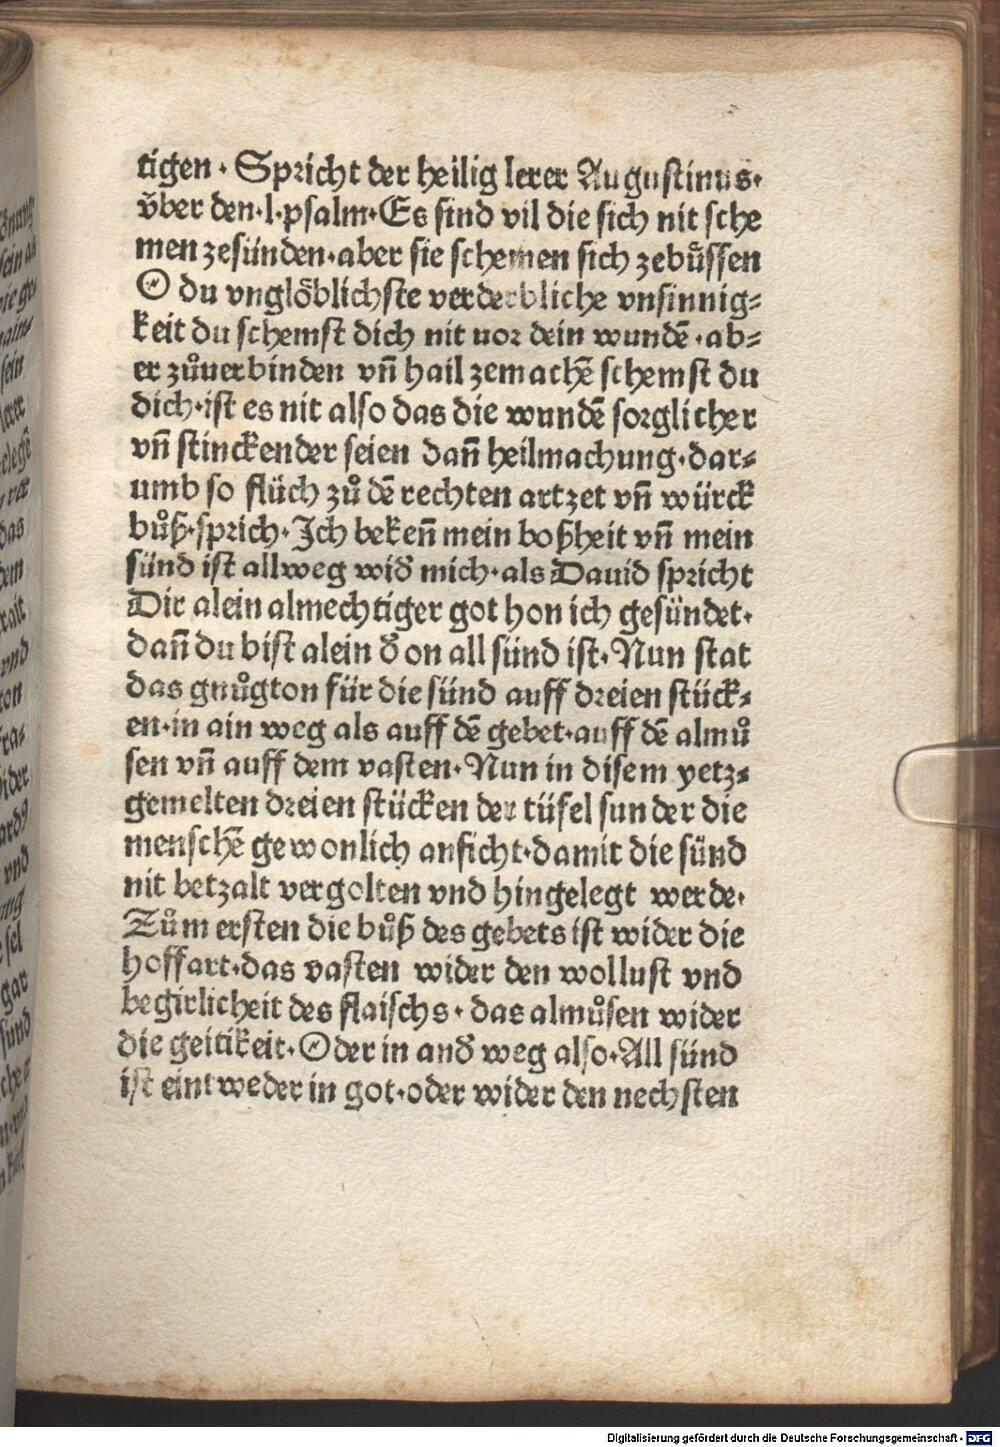 tigen · Spricht der heilig lerer Augustinus·
v̈ber den·l·psalm·Es sind vil die sich nit sche
men zesünden·aber sie schemen sich zebüssen
O du vnglöblichste verderbliche vnsinnig⸗
keit du schemst dich nit uor dein wundē·ab⸗
er zůuerbinden vn̄ hail zemachē schemst du
dich·ist es nit also das die wundē sorglicher
vn̄ stinckender seien dan̄ heilmachung·dar⸗
umb so flüch zů dē rechten artzet vn̄ würck
bůß·sprich·Ich beken̄ mein boßheit vn̄ mein
sünd ist allweg wid᷑ mich·als Dauid spricht
Dir alein almechtiger got hon ich gesündet·
dan̄ du bist alein d᷑ on all sünd ist·Nun stat
das gnůgton für die sünd auff dreien stück⸗
en·in ain weg als auff dē gebet·auff dē almů
sen vn̄ auff dem vasten·Nun in disem yetz⸗
gemelten dreien stücken der tüfel sunder die
menschē gewonlich anficht·damit die sünd
nit betzalt vergolten vnd hingelegt werde·
Zům ersten die bůß des gebets ist wider die
hoffart·das vasten wider den wollust vnd
begirlicheit des flaischs·das almůsen wider
die geitikeit·Oder in and᷑ weg also·All sünd
ist eintweder in got·oder wider den nechsten
Digitalisierung gefördert durch die Deutsche Forschungsgemeinschaft - DFG